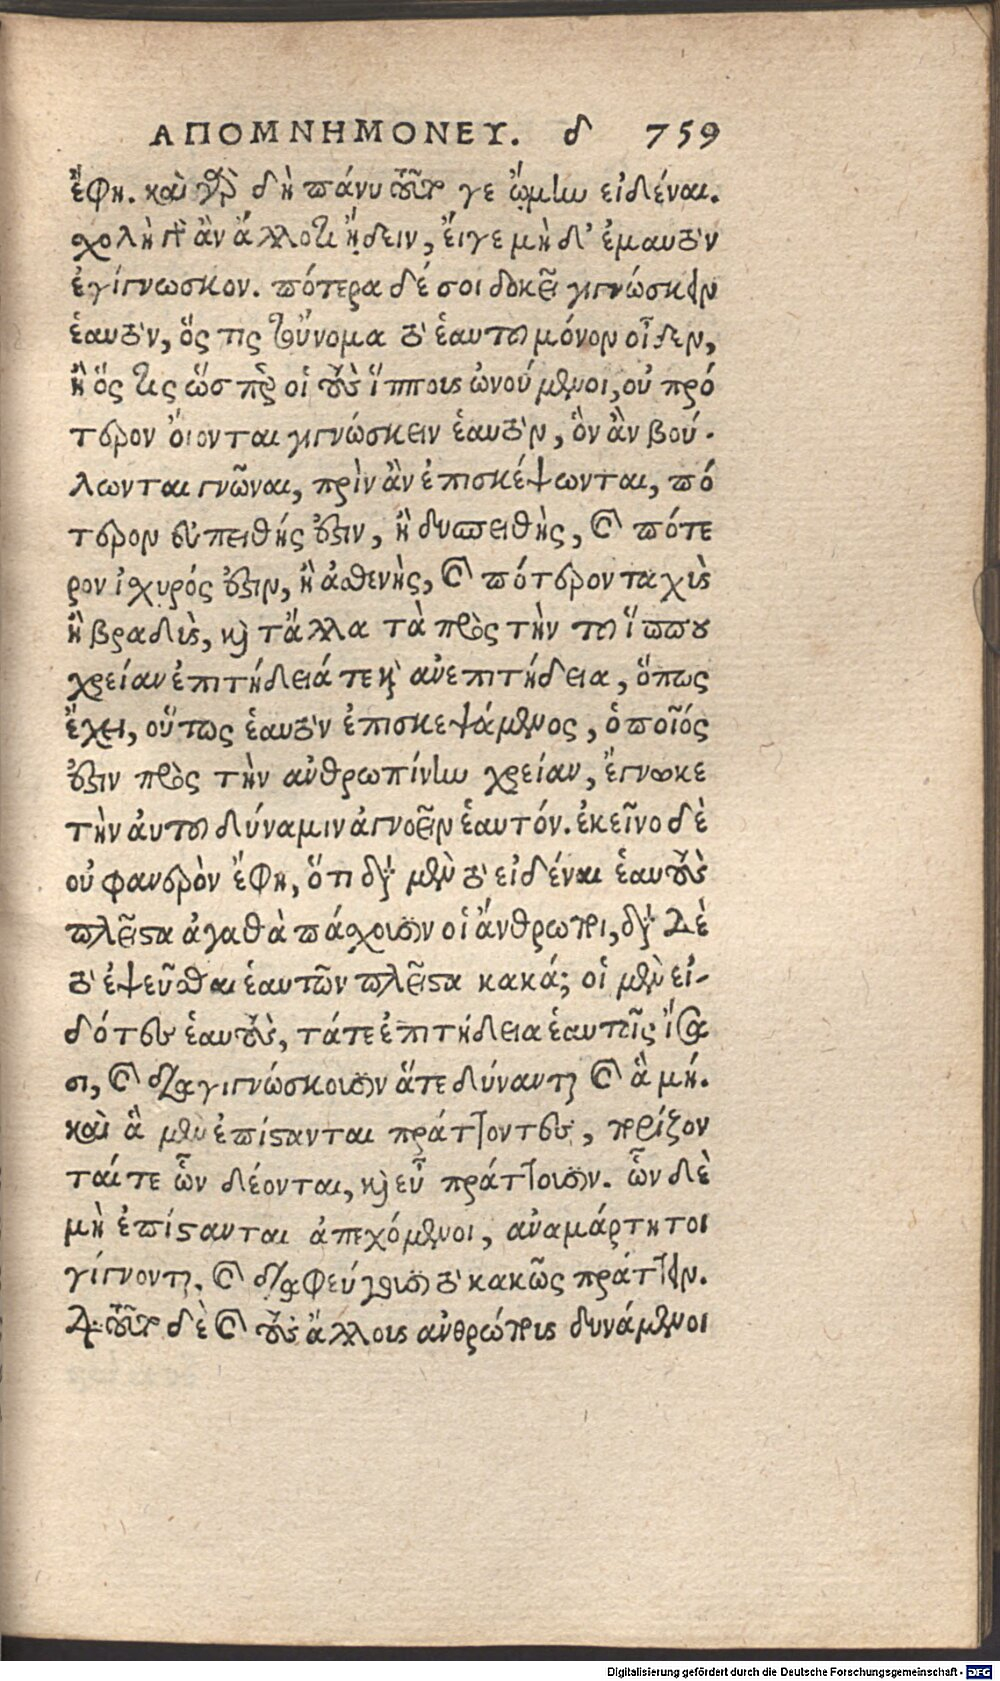 ΑΠΟΜΝΗΜΟΝΕΥ. δ 759
ἔφη. καὶ γὰρ δὴ πάνυ τοῦτό γε ᾤμην εἰδέναι.
χολῇ γὰρ ἂν ἄλλό τι ᾔδειν, εἴγε μὴ δ' ἐμαυτὸν
ἐγίγνωσκον. πότερα δέ σοι δοκεῖ γιγνώσκειν
ἑαυτὸν, ὅς τις τοὔνομα τὸ ἑαυτοῦ μόνον οἶδεν,
ἢ ὅς τις ὥσπερ οἱ τοὺς ἵππους ὠνούμενοι, οὐ πρό
τερον οἴονται γιγνώσκειν ἑαυτὸν, ὃν ἂν βού-
λωνται γνῶναι, πρὶν ἂν ἐπισκέψωνται, πό
τερον εὐπειθής ἐστιν, ἢ δυσπειθὴς, καὶ πότε
ρον ἰσχυρός ἐστιν, ἢ ἀσθενὴς, καὶ πότερον ταχὺς
ἢ βραδὺς, καὶ τἄλλα τὰ πρὸς τὴν τοῦ ἵππου
χρείαν ἐπιτήδειά τε καὶ ἀνεπιτήδεια, ὅπως
ἔχει, οὕτως ἑαυτὸν ἐπισκεψάμενος, ὁποῖός
ἐστιν πρὸς τὴν ἀνθρωπίνην χρείαν, ἔγνωκε
τὴν αὑτοῦ δύναμιν ἀγνοεῖν ἑαυτόν. ἐκεῖνο δὲ
οὐ φανερὸν ἔφη, ὅτι διὰ μὲν τὸ εἰδέναι ἑαυτοὺς
πλεῖστα ἀγαθὰ πάσχουσιν οἱ ἄνθρωποι, διὰ δὲ
τὸ ἐψεῦσθαι ἑαυτῶν πλεῖστα κακά; οἱ μὲν εἰ-
δότες ἑαυτοὺς, τάτε ἐπιτήδεια ἑαυτοῖς ἴσα
σι, καὶ διαγιγνώσκουσιν ἅτε δύνανται καὶ ἃ μή.
καὶ ἃ μὲν ἐπίστανται πράττοντες, πορίζον
ταί τε ὧν δέονται, καὶ εὖ πράττουσιν. ὧν δὲ
μὴ ἐπίστανται ἀπεχόμενοι, ἀναμάρτητοι
γίγνονται. καὶ διαφεύγουσι τὸ κακῶς πράττειν.
διὰ τοῦτο δὲ καὶ τοὺς ἄλλους ἀνθρώπους δυνάμενοι
Digitalisierung gefördert durch die Deutsche Forschungsgemeinschaft - DFG